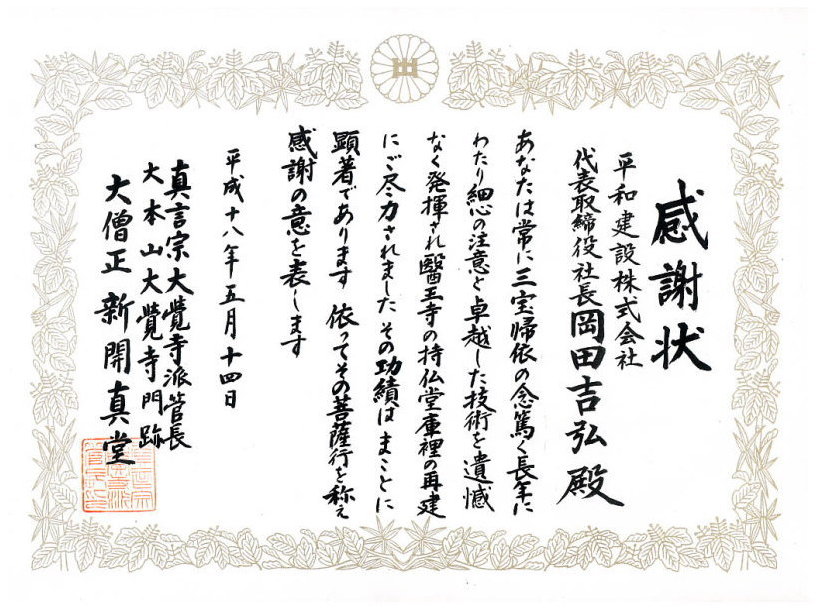 感謝状
平和建設株式会社
代表取締役社長岡田吉弘殿
あなたは常に三宝帰依の念篤く長年に
わたり細心の注意と卓越した技術を遺憾
なく発揮され醫王寺の持仏堂庫裡の再建
にご尽力されましたその功績はまことに
顕著であります依ってその菩薩行を称え
感謝の意を表します
平成十八年五月十四日
真言宗大覺寺派管長
大本山大覺寺門跡
大僧正新開真堂